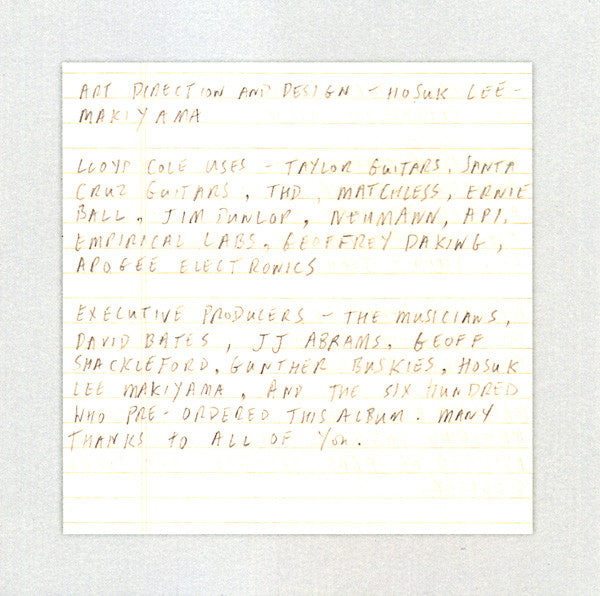 ART DIRECTION AND DESIGN - HOSUK LEE-
MAKIYAMA
LLOYD COLE USES - TAYLOR GUITARS, SANTA
CRUZ GUITARS, THD, MATCHLESS, ERNIE
BALL, JIM DUNLOP, NEUMANN, API,
EMPIRICAL LABS, GEOFFREY DAKING,
APOGEE ELECTRONICS
EXECUTIVE PRODUCERS - THE MUSICIANS,
DAVID BATES, JJ ABRAMS, GEOFF
SHACKLEFORD, GUNTHER BUSKIES, HOSUK
LEE MAKIYAMA, AND THE SIX HUNDRED
WHO PRE-ORDERED THIS ALBUM. MANY
THANKS TO ALL OF YOU.